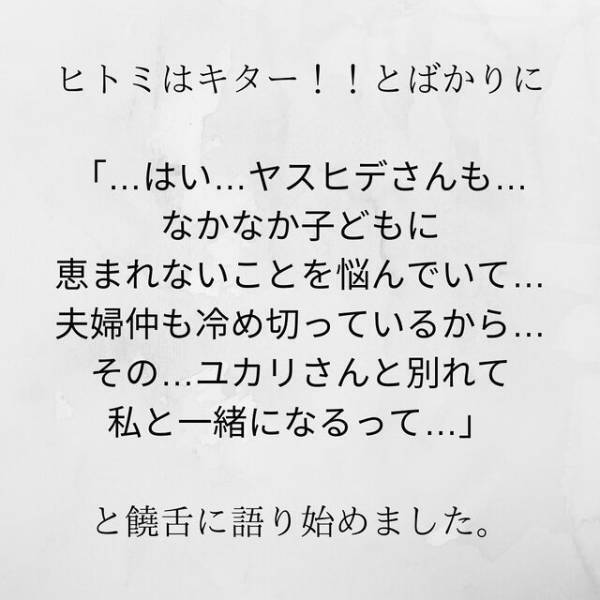 ヒトミはキター！！とばかりに
「…はい…ヤスヒデさんも…
なかなか子どもに
恵まれないことを悩んでいて…
夫婦仲も冷め切っているから…
その…ユカリさんと別れて
私と一緒になるって…」
と饒舌に語り始めました。